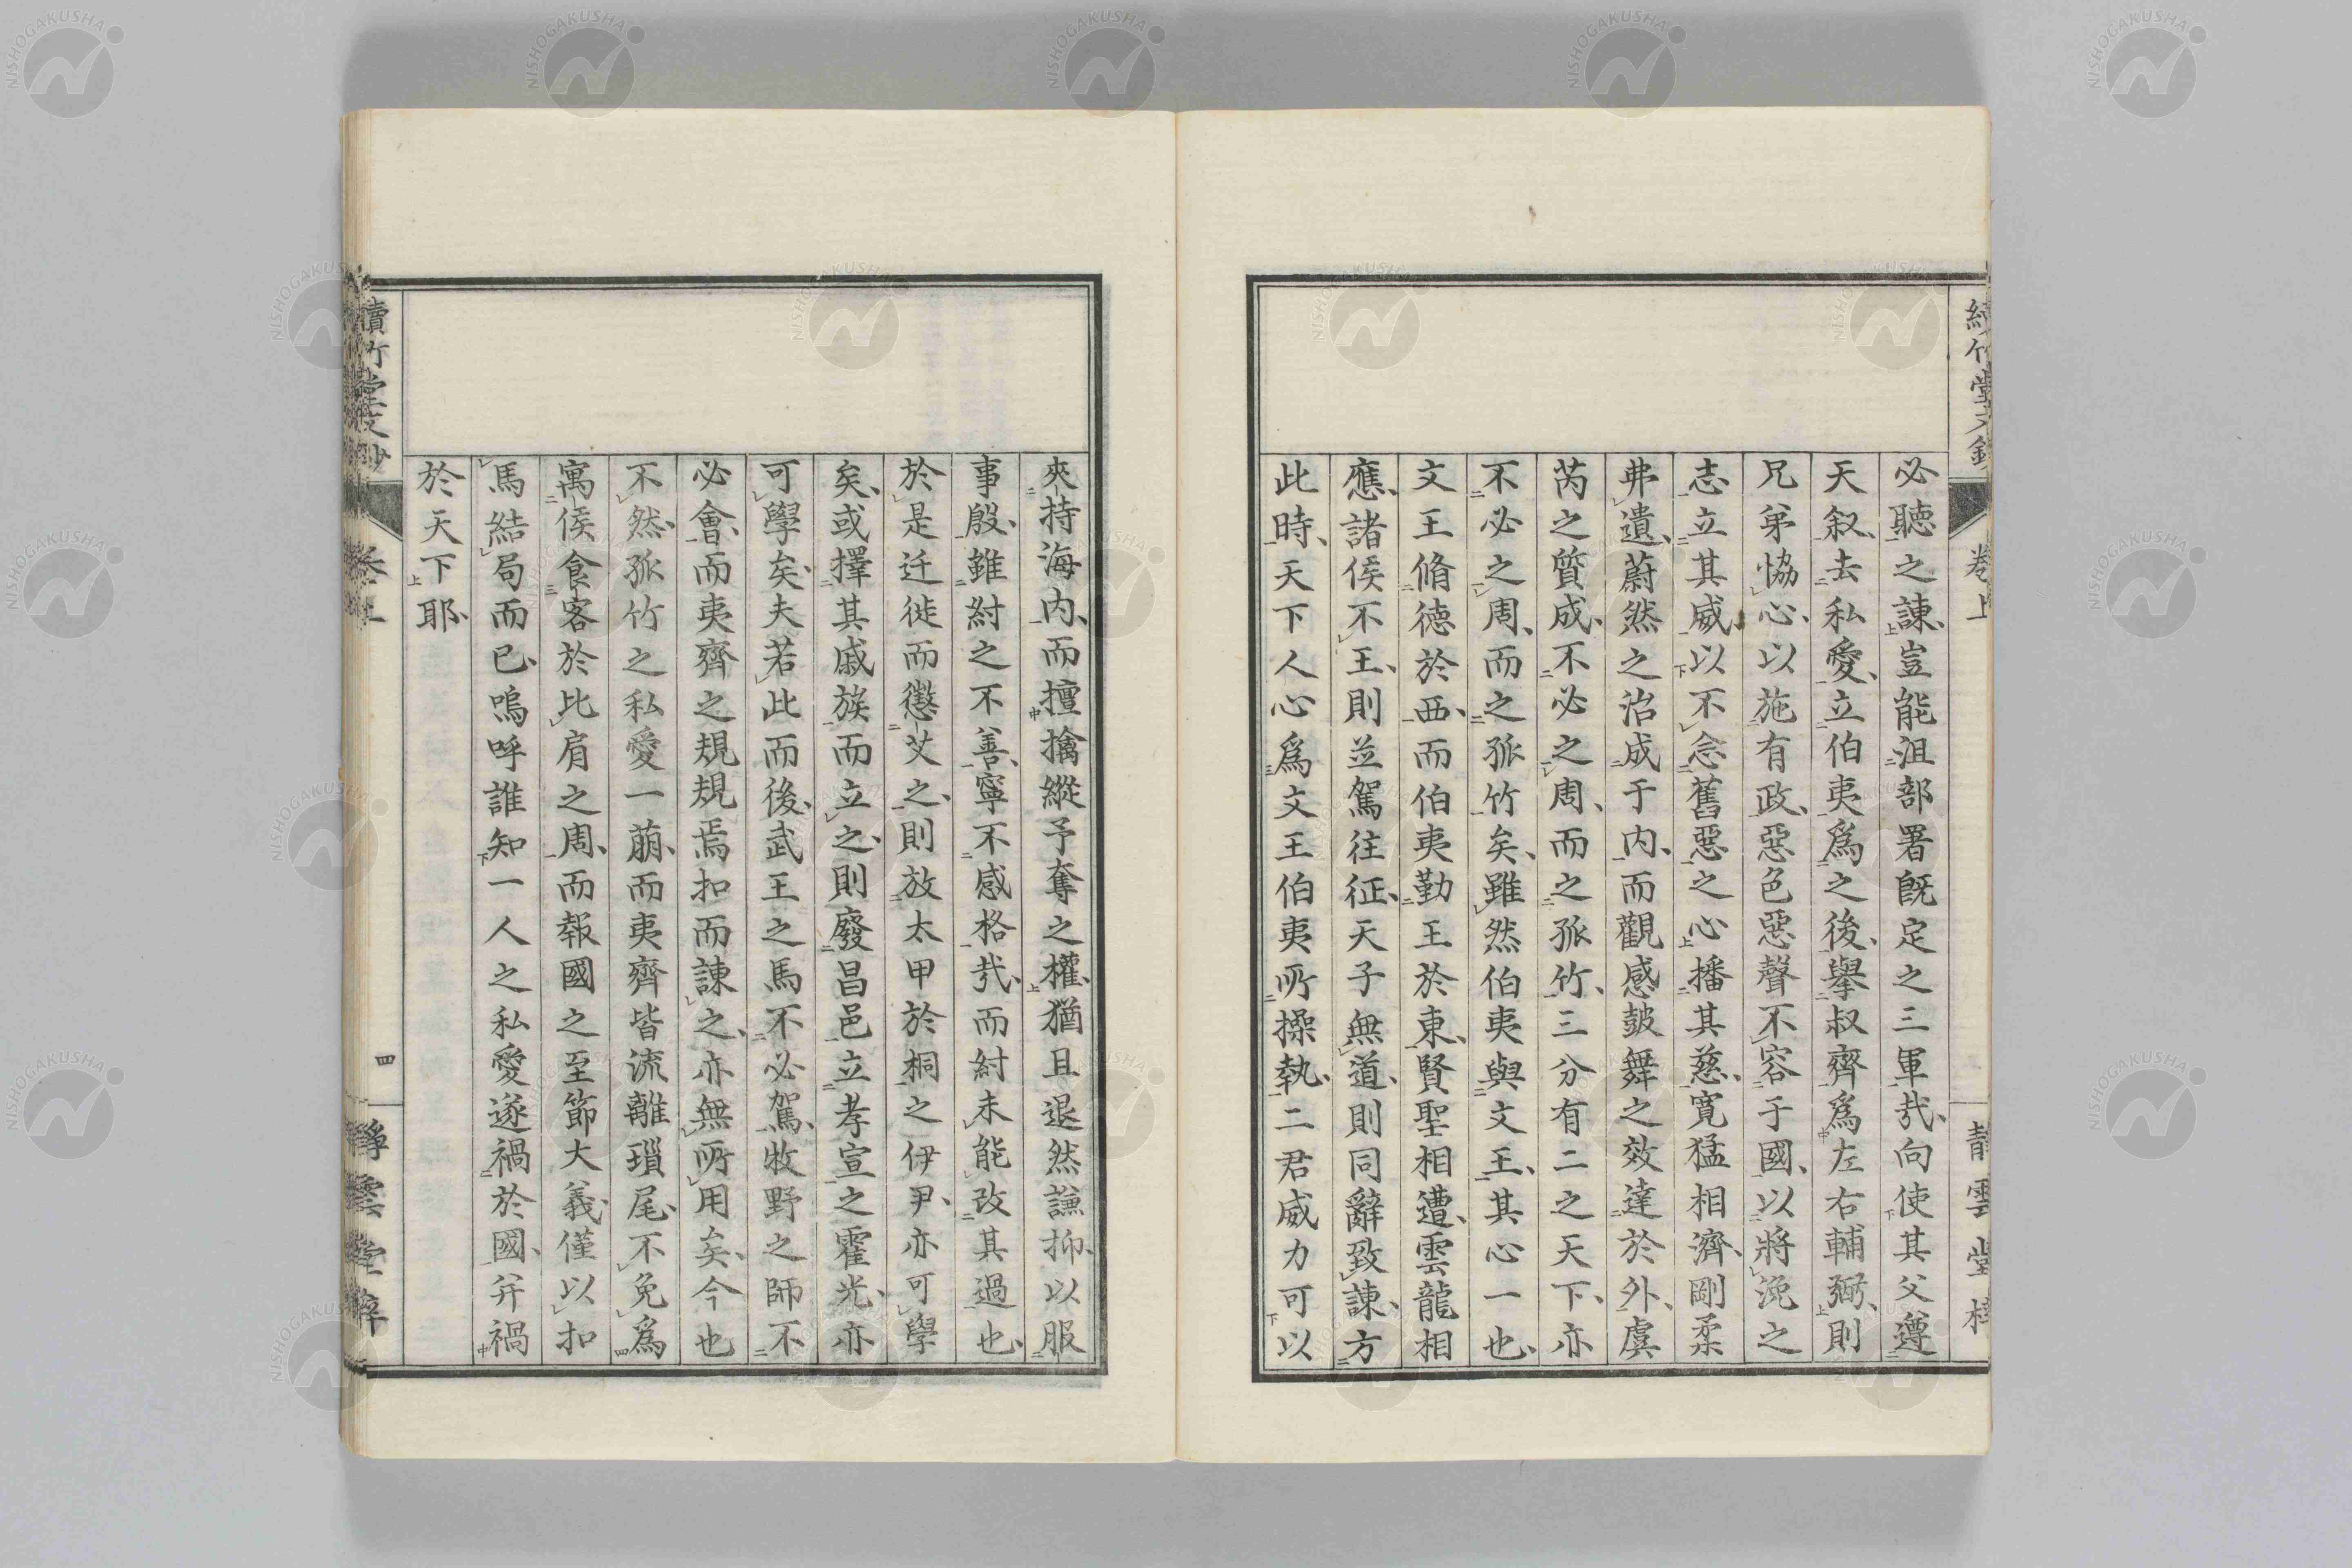 必聽之諫、豈能沮部署既定之三軍哉、向使其父遵
天叙、去私愛、立伯夷爲之後、擧叔齊爲左右輔弼、則
兄弟恊心、以施有政、惡色惡聲不容于國、以將浼之
志立其威、以不念舊惡之心播其慈、寛猛相濟、剛柔
弗遺、蔚然之治成于内、而觀感皷舞之效達於外、虞
芮之質成、不必之周、而之孤竹、三分有二之天下、亦
不必之周、而之孤竹矣、雖然伯夷與文王、其心一也、
文王脩德於西、而伯夷勤王於東、賢聖相遭、雲龍相
應、諸侯不王、則並駕往征、天子無道、則同辭致諫、方
此時、天下人心爲文王伯夷所操執、二君威力可以
夾持海内、而擅擒縱予奪之權、猶且退然謙抑、以服
事殷、雖紂之不善、寧不感格哉、而紂未能改其過也、
於是迁徙而懲艾之、則放太甲於桐之伊尹、亦可學
矣、或擇其戚族而立之、則廢昌邑立孝宣之霍光、亦
可學矣、夫若此而後、武王之馬不必駕、牧野之師不
必會、而夷齊之規規焉扣而諫之、亦無所用矣、今也
不然、孤竹之私愛一萠、而夷齊皆流離瑣尾、不免爲
寓侯食客於比肩之周、而報國之至節大義、僅以扣
馬結局而已、嗚呼誰知一人之私愛遂禍於國、幷禍
於天下耶、
卷上
四